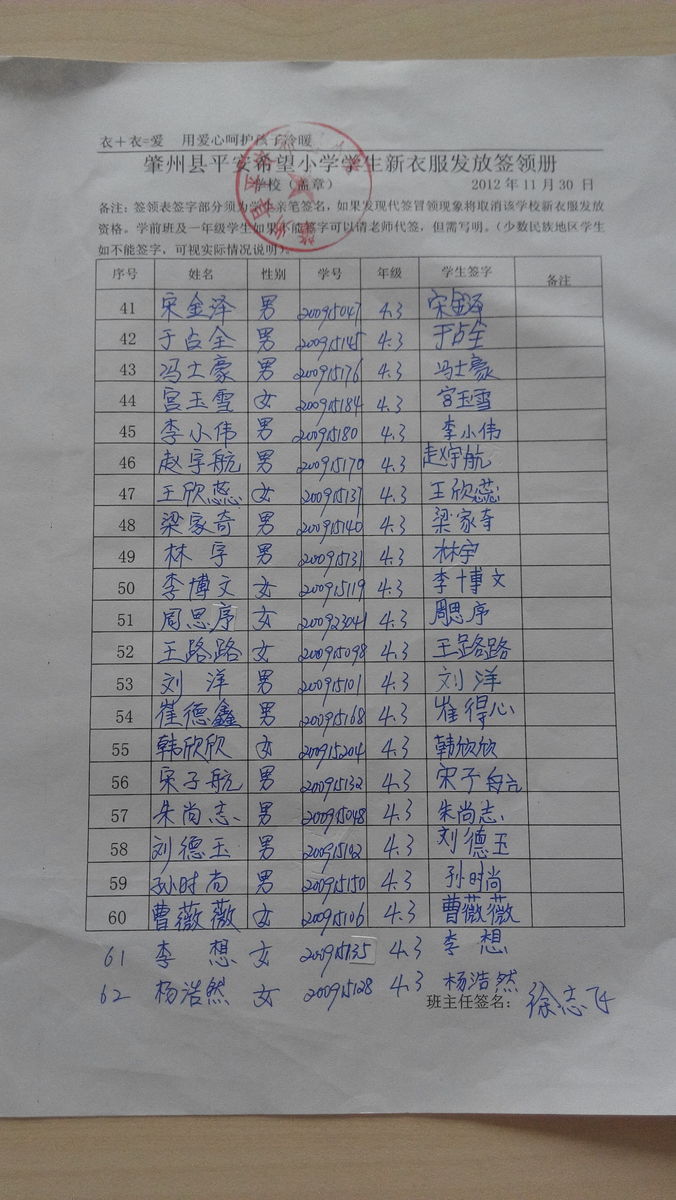 衣+衣=爱 用爱心呵护孩子冷暖
肇州县平安希望小学学生新衣服发放签领册
学校（盖章） 2012 年 11 月 30 日
备注：签领表签字部分须为学生亲笔签名，如果发现代签冒领现象将取消该学校新衣服发放
资格。学前班及一年级学生如果不能签字可以请老师代签，但需写明。（少数民族地区学生
如不能签字，可视实际情况说明）。
序号 姓名 性别 学号 年级 学生签字 备注
41 宋金泽 男 200915047 4.3 宋金泽
42 于占全 男 200915145 4.3 于占全
43 冯士豪 男 200915176 4.3 冯士豪
44 宫玉雪 女 200915184 4.3 宫玉雪
45 李小伟 男 200915180 4.3 李小伟
46 赵宇航 男 200915170 4.3 赵宇航
47 王欣蕊 女 200915137 4.3 王欣蕊
48 梁家奇 男 200915140 4.3 梁家奇
49 林宇 男 200915131 4.3 林宇
50 李博文 女 200915119 4.3 李博文
51 周思序 女 200923041 4.3 周思序
52 王路路 女 200915098 4.3 王路路
53 刘洋 男 200915101 4.3 刘洋
54 崔德鑫 男 200915168 4.3 崔得心
55 韩欣欣 女 200915204 4.3 韩欣欣
56 宋子航 男 200915132 4.3 宋子航
57 朱尚志 男 200915048 4.3 朱尚志
58 刘德玉 男 200915102 4.3 刘德玉
59 孙时尚 男 200915150 4.3 孙时尚
60 曹薇薇 女 200915106 4.3 曹薇薇
61 李想 女 200915135 4.3 李想
62 杨浩然 女 200915128 4.3 杨浩然
班主任签名： 徐志飞